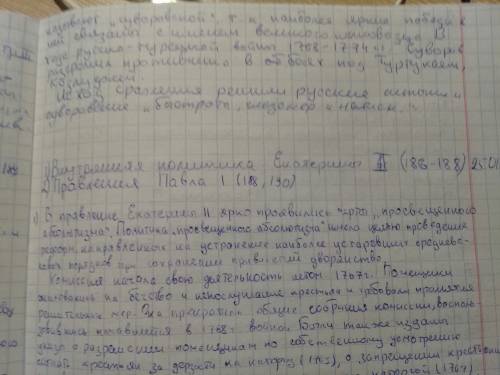 называют "суворовской", т. к. наиболее яркие победы в
ней связаны с именем великого полководца. В
ходе русско-турецкой войны 1768-1774 гг. Суворов
разгромил противника в боях под Туртукаем,
Козлуджей.
Исход сражения решили русские
суворовские "быстрота, глазомер и натиск."
1) Внутренняя политика Екатерины II (188-188) 25.01
2) Правления Павла I (188, 190)
1) В правление Екатерины II ярко проявились черты "просвещенного
абсолютизма". Политика "просвещенного абсолютизма" имела целью проведение
реформ, направленных на устранение наиболее устаревших средневе-
ковых порядков при сохранении привилегий дворянство.
Комиссия начала свою деятельность летом 1767г. Помещики
жаловались на бегство и непослушание крестьян и требовали принятия
решительных мер. Она прекратила общие собрания комиссии, восполь-
зовавшись начавшейся в 1768г войной. Были также изданы
указы о разрешении помещикам по собственному усмотрению
крестьян за дерзость на каторгу (1765), о запрещении крестьянам
(1767)